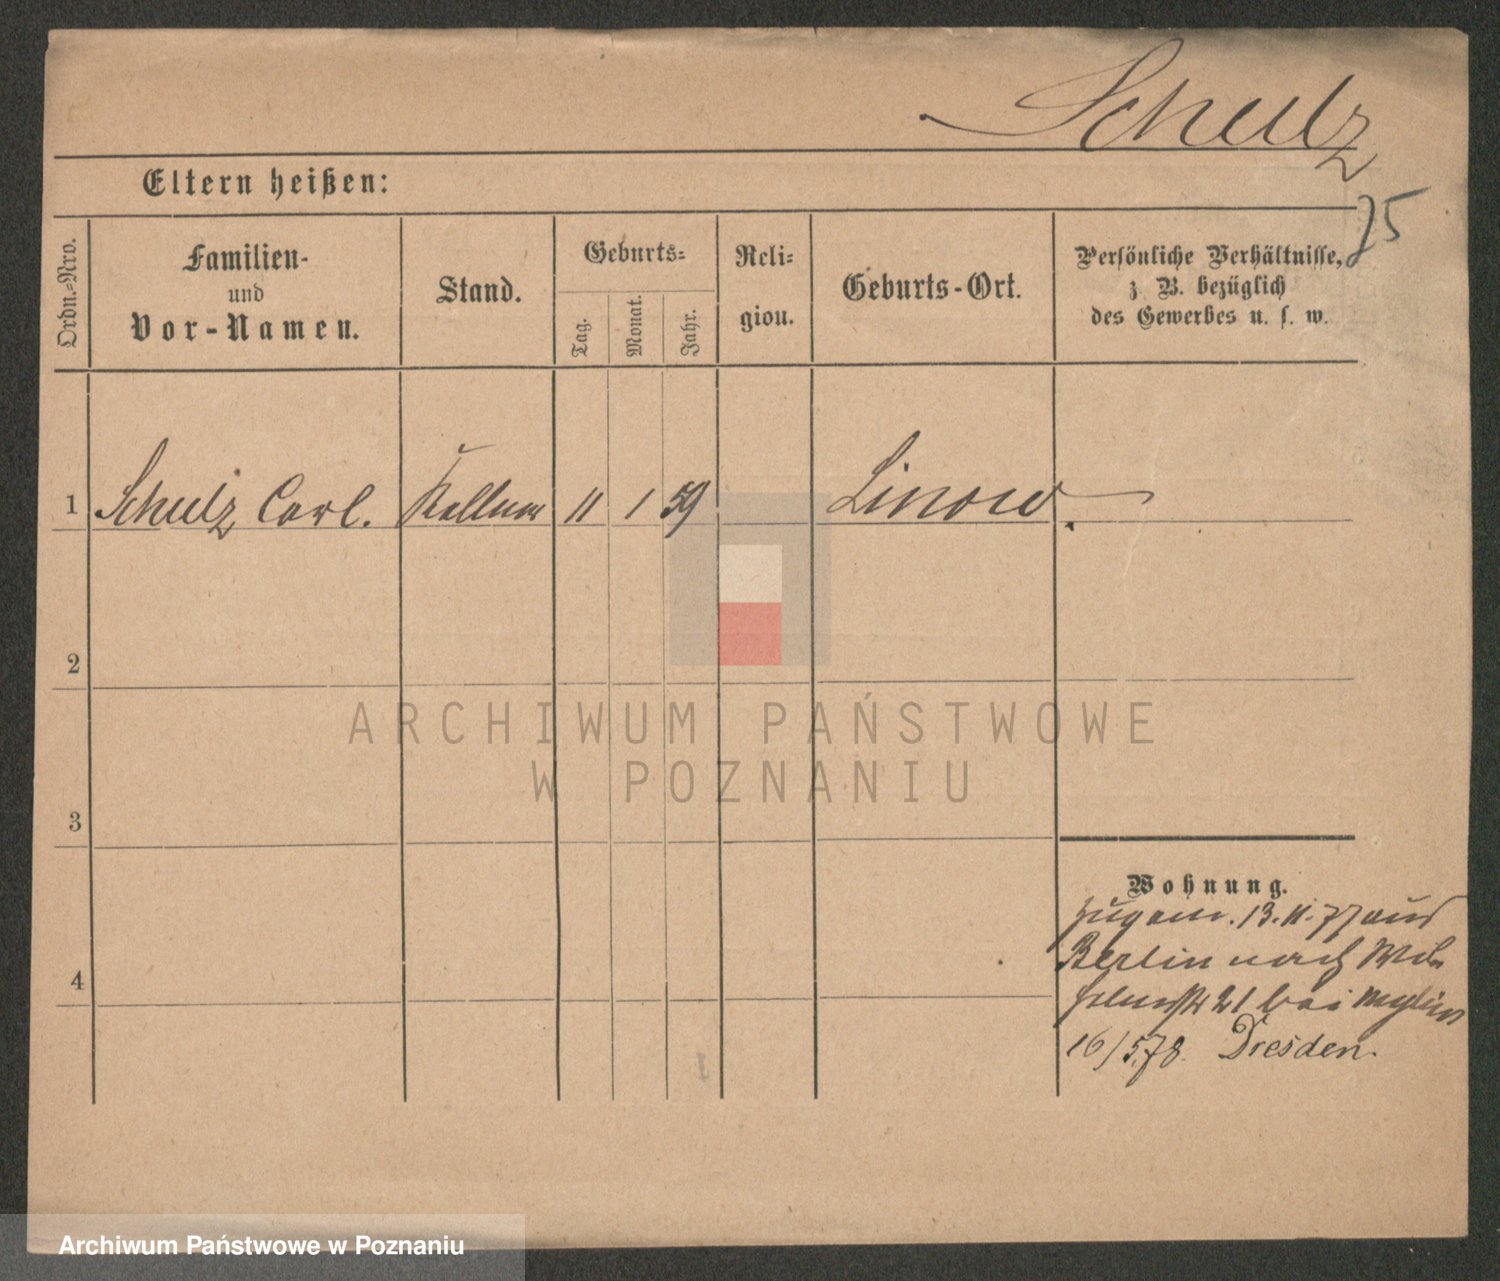 Schulz
75
Eltern heißen:
Ordn.-Nro.
Familien-
und
Vor-Namen.
Stand.
Geburts-
Tag.
Monat.
Jahr.
Reli-
gion.
Geburts-Ort.
Persönliche Verhältnisse,
z. B. bezüglich
des Gewerbes u. s. w.
1 Schulz Carl. Kellner 11 1 59 Linow.
2
3
4
ARCHIWUM PAŃSTWOWE
W POZNANIU
Wohnung.
13. 11. 77 aus
Berlin nach Wil-
helmstr 21 bei
16/5.78. Dresden.
Archiwum Państwowe w Poznaniu